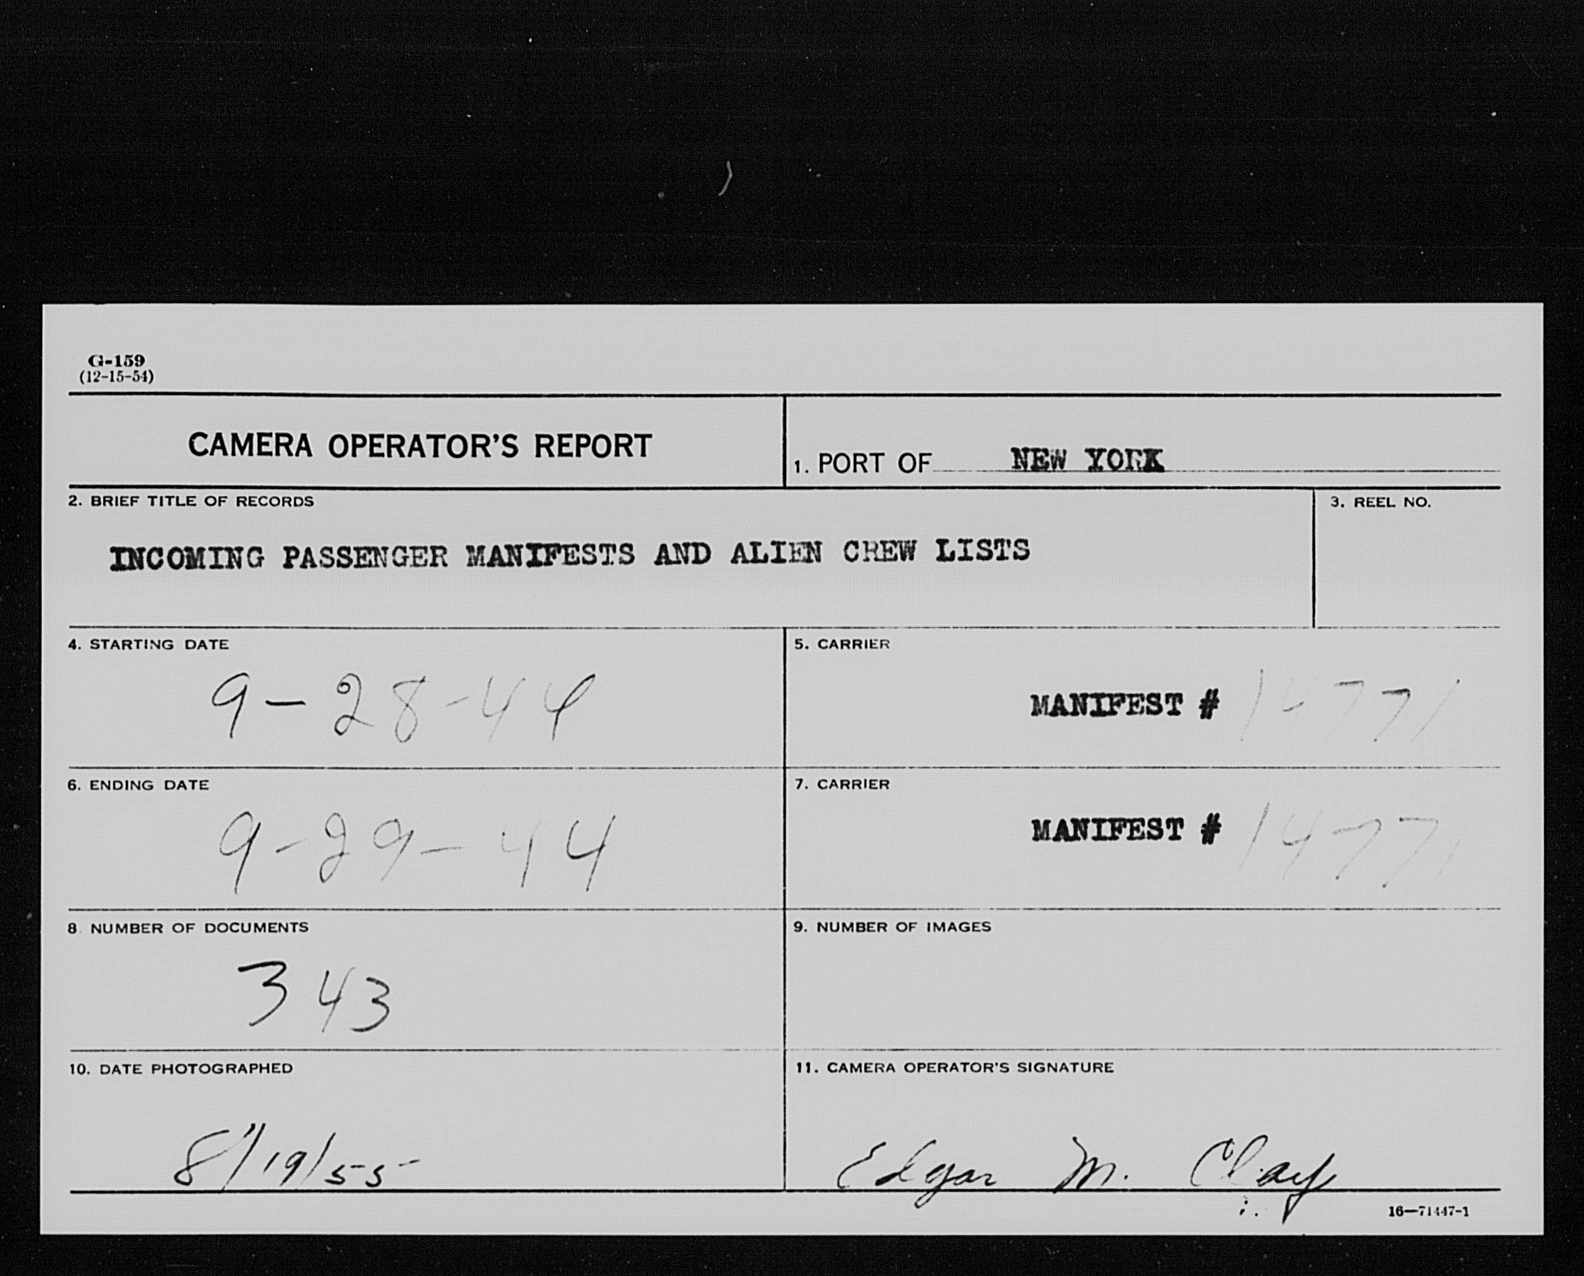 G-159
(12-15-54)
CAMERA OPERATOR'S REPORT
1. PORT OF NEW YORK
2. BRIEF TITLE OF RECORDS
3. REEL NO.
INCOMING PASSENGER MANIFESTS AND ALIEN CREW LISTS
4. STARTING DATE
5. CARRIER
9-28-44
MANIFEST # 14771
6. ENDING DATE
7. CARRIER
9-29-44
MANIFEST # 14771
8. NUMBER OF DOCUMENTS
9. NUMBER OF IMAGES
343
10. DATE PHOTOGRAPHED
11. CAMERA OPERATOR'S SIGNATURE
8/19/55
Edgar M. Clay
16—71447-1